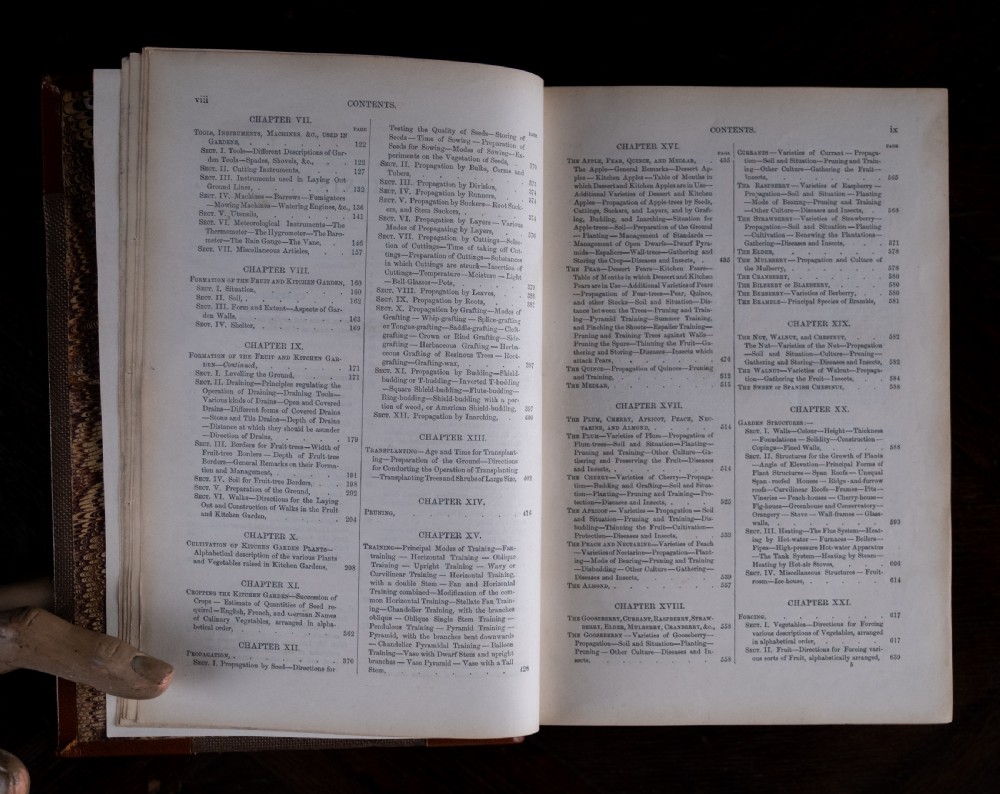 viii
CONTENTS.
CHAPTER VII.
PAGE
TOOLS, INSTRUMENTS, MACHINES, &c., USED IN
GARDENS, 122
SECT. I. Tools—Different Descriptions of Gar-
den Tools—Spades, Shovels, &c., 122
SECT. II. Cutting Instruments, 127
SECT. III. Instruments used in Laying Out
Ground Lines, 132
SECT. IV. Machines—Barrows—Fumigators
—Mowing Machines—Watering Engines, &c., 136
SECT. V. Utensils, 141
SECT. VI. Meteorological Instruments—The
Thermometer—The Hygrometer—The Baro-
meter—The Rain Gauge—The Vane, 146
SECT. VII. Miscellaneous Articles, 157
CHAPTER VIII.
FORMATION OF THE FRUIT AND KITCHEN GARDEN, 160
SECT. I. Situation, 160
SECT. II. Soil, 162
SECT. III. Form and Extent—Aspects of Gar-
den Walls, 163
SECT. IV. Shelter, 169
CHAPTER IX.
FORMATION OF THE FRUIT AND KITCHEN GAR-
DEN—Continued, 171
SECT. I. Levelling the Ground, 171
SECT. II. Draining—Principles regulating the
Operation of Draining—Draining Tools—
Various kinds of Drains—Open and Covered
Drains—Different forms of Covered Drains
—Stone and Tile Drains—Depth of Drains
—Distance at which they should be asunder
—Direction of Drains, 179
SECT. III. Borders for Fruit-trees—Width of
Fruit-tree Borders—Depth of Fruit-tree
Borders—General Remarks on their Forma-
tion and Management, 191
SECT. IV. Soil for Fruit-tree Borders, 198
SECT. V. Preparation of the Ground, 202
SECT. VI. Walks—Directions for the Laying
Out and Construction of Walks in the Fruit
and Kitchen Garden, 204
CHAPTER X.
CULTIVATION OF KITCHEN GARDEN PLANTS—
Alphabetical description of the various Plants
and Vegetables raised in Kitchen Gardens, 208
CHAPTER XI.
CROPPING THE KITCHEN GARDEN—Succession of
Crops—Estimate of Quantities of Seed re-
quired—English, French, and German Names
of Culinary Vegetables, arranged in alpha-
betical order, 362
CHAPTER XII.
PROPAGATION, 376
SECT. I. Propagation by Seed—Directions for
PAGE
Testing the Quality of Seeds—Storing of
Seeds—Time of Sowing—Preparation of
Seeds for Sowing—Modes of Sowing—Ex-
periments on the Vegetation of Seeds,
SECT. II. Propagation by Bulbs, Corms and
Tubers,
SECT. III. Propagation by Division,
SECT. IV. Propagation by Runners,
SECT. V. Propagation by Suckers—Root Suck-
ers, and Stem Suckers,
SECT. VI. Propagation by Layers—Various
Modes of Propagating by Layers,
SECT. VII. Propagation by Cuttings—Selec-
tion of Cuttings—Time of taking off Cut-
tings—Preparation of Cuttings—Substances
in which Cuttings are struck—Insertion of
Cuttings—Temperature—Moisture—Light
—Bell Glasses—Pots,
SECT. VIII. Propagation by Leaves,
SECT. IX. Propagation by Roots,
SECT. X. Propagation by Grafting—Modes of
Grafting—Whip-grafting—Splice-grafting
or Tongue-grafting—Saddle-grafting—Cleft-
grafting—Crown or Rind Grafting—Side-
grafting—Herbaceous Grafting—Herba-
ceous Grafting of Resinous Trees—Root-
grafting—Grafting-wax,
SECT. XI. Propagation by Budding—Shield-
budding or T-budding—Inverted T-budding
—Square Shield-budding—Flute-budding—
Ring-budding—Shield-budding with a por-
tion of wood, or American Shield-budding,
SECT. XII. Propagation by Inarching,
CHAPTER XIII.
TRANSPLANTING—Age and Time for Transplant-
ing—Preparation of the Ground—Directions
for Conducting the Operation of Transplanting
—Transplanting Trees and Shrubs of Large Size,
CHAPTER XIV.
PRUNING,
CHAPTER XV.
TRAINING—Principal Modes of Training—Fan-
training—Horizontal Training—Oblique
Training—Upright Training—Wavy or
Curvilinear Training—Horizontal Training,
with a double Stem—Fan and Horizontal
Training combined—Modification of the com-
mon Horizontal Training—Stellate Fan Train-
ing—Chandelier Training, with the branches
oblique—Oblique Single Stem Training—
Pendulous Training—Pyramid Training—
Pyramid, with the branches bent downwards
—Chandelier Pyramidal Training—Balloon
Training—Vase with Dwarf Stem and upright
branches—Vase Pyramid—Vase with a Tall
Stem, 428
CONTENTS.
ix
CHAPTER XVI.
PAGE
THE APPLE, PEAR, QUINCE, AND MEDLAR, 455
The Apple—General Remarks—Dessert Ap-
ples—Kitchen Apples—Table of Months in
which Dessert and Kitchen Apples are in Use—
Additional Varieties of Dessert and Kitchen
Apples—Propagation of Apple-trees by Seeds,
Cuttings, Suckers, and Layers, and by Graft-
ing, Budding, and Inarching—Situation for
Apple-trees—Soil—Preparation of the Ground
—Planting—Management of Standards—
Management of Open Dwarfs—Dwarf Pyra-
mids—Espaliers—Wall-trees—Gathering and
Storing the Crop—Diseases and Insects, 455
THE PEAR—Dessert Pears—Kitchen Pears—
Table of Months in which Dessert and Kitchen
Pears are in Use—Additional Varieties of Pears
—Propagation of Pear-trees—Pear, Quince,
and other Stocks—Soil and Situation—Dis-
tance between the Trees—Pruning and Train-
ing—Pyramid Training—Summer Training,
and Pinching the Shoots—Espalier Training—
Pruning and Training Trees against Walls—
Pruning the Spurs—Thinning the Fruit—Ga-
thering and Storing—Diseases—Insects which
attack Pears, 476
THE QUINCE—Propagation of Quinces—Pruning
and Training, 512
THE MEDLAR, 513
CHAPTER XVII.
THE PLUM, CHERRY, APRICOT, PEACH, NEC-
TARINE, AND ALMOND, 514
THE PLUM—Varieties of Plum—Propagation of
Plum-trees—Soil and Situation—Planting—
Pruning and Training—Other Culture—Ga-
thering and Preserving the Fruit—Diseases
and Insects, 514
THE CHERRY—Varieties of Cherry—Propaga-
tion—Budding and Grafting—Soil and Situa-
tion—Planting—Pruning and Training—Pro-
tection—Diseases and Insects, 525
THE APRICOT—Varieties—Propagation—Soil
and Situation—Pruning and Training—Dis-
budding—Thinning the Fruit—Cultivation—
Protection—Diseases and Insects, 533
THE PEACH AND NECTARINE—Varieties of Peach
—Varieties of Nectarine—Propagation—Plant-
ing—Mode of Bearing—Pruning and Training
—Disbudding—Other Culture—Gathering—
Diseases and Insects, 539
THE ALMOND, 557
CHAPTER XVIII.
THE GOOSEBERRY, CURRANT, RASPBERRY, STRAW-
BERRY, ELDER, MULBERRY, CRANBERRY, &c., 558
THE GOOSEBERRY—Varieties of Gooseberry—
Propagation—Soil and Situation—Planting—
Pruning—Other Culture—Diseases and In-
sects, 558
PAGE
CURRANTS—Varieties of Currant—Propaga-
tion—Soil and Situation—Pruning and Train-
ing—Other Culture—Gathering the Fruit—
Insects, 565
THE RASPBERRY—Varieties of Raspberry—
Propagation—Soil and Situation—Planting
—Mode of Bearing—Pruning and Training
—Other Culture—Diseases and Insects, 568
THE STRAWBERRY—Varieties of Strawberry—
Propagation—Soil and Situation—Planting
—Cultivation—Renewing the Plantations—
Gathering—Diseases and Insects, 571
THE ELDER, 578
THE MULBERRY—Propagation and Culture of
the Mulberry, 578
THE CRANBERRY, 580
THE BILBERRY or BLAEBERRY, 580
THE BERBERRY—Varieties of Berberry, 580
THE BRAMBLE—Principal Species of Bramble, 581
CHAPTER XIX.
THE NUT, WALNUT, AND CHESTNUT, 582
The Nut—Varieties of the Nut—Propagation
—Soil and Situation—Culture—Pruning—
Gathering and Storing—Diseases and Insects, 582
THE WALNUT—Varieties of Walnut—Propaga-
tion—Gathering the Fruit—Insects, 584
THE SWEET or SPANISH CHESTNUT, 588
CHAPTER XX.
GARDEN STRUCTURES:—
SECT. I. Walls—Colour—Height—Thickness
—Foundations—Solidity—Construction—
Copings—Fixed Walls, 588
SECT. II. Structures for the Growth of Plants
—Angle of Elevation—Principal Forms of
Plant Structures—Span Roofs—Unequal
Span-roofed Houses—Ridge-and-furrow
roofs—Curvilinear Roofs—Frames—Pits—
Vineries—Peach-houses—Cherry-house—
Fig-house—Greenhouse and Conservatory—
Orangery—Stove—Wall-frames—Glass-
walls, 593
SECT. III. Heating—The Flue System—Heat-
ing by Hot-water—Furnaces—Boilers—
Pipes—High-pressure Hot-water Apparatus
—The Tank System—Heating by Steam—
Heating by Hot-air Stoves, 604
SECT. IV. Miscellaneous Structures—Fruit-
room—Ice-house, 614
CHAPTER XXI.
FORCING, 617
SECT. I. Vegetables—Directions for Forcing
various descriptions of Vegetables, arranged
in alphabetical order, 617
SECT. II. Fruit—Directions for Forcing vari-
ous sorts of Fruit, alphabetically arranged, 639
b